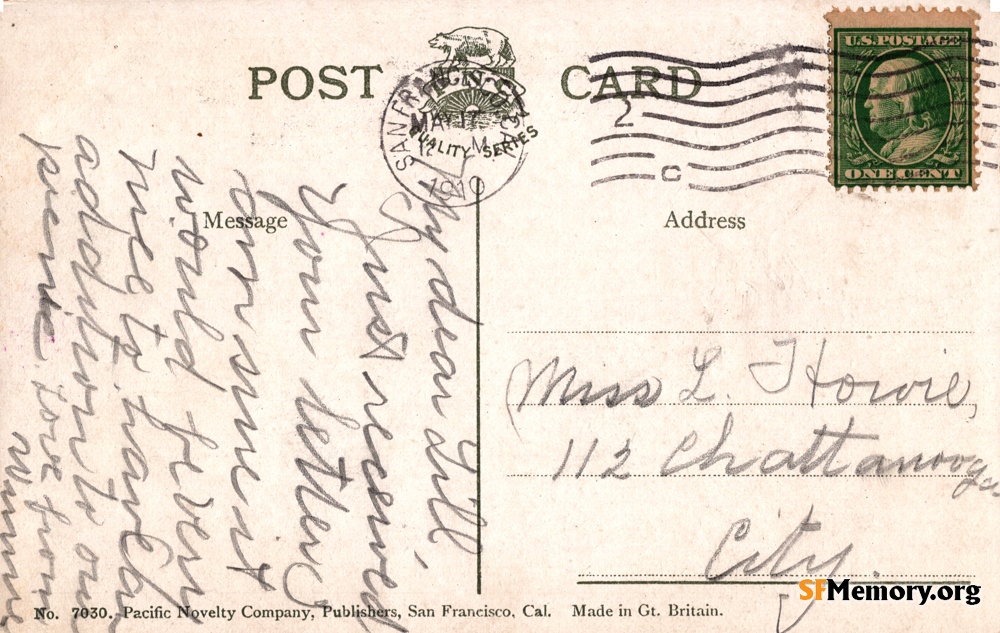 POST CARD
PACIFIC
QUALITY SERIES
SAN FRANCISCO, CAL.
MAY 17
12 M
1910
2
C
U.S. POSTAGE
ONE CENT
Message
My dear Lill,
Just received
your letter
am sure it
would be very
nice to have a
addition to our
picnic. Love from
Minnie
Address
Miss L. Howie,
112 Chattanooga
City.
No. 7030. Pacific Novelty Company, Publishers, San Francisco, Cal. Made in Gt. Britain.
SFMemory.org